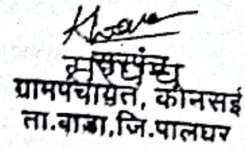 सरपंच
ग्रामपंचायत, कोनसई
ता.वाडा, जि.पालघर